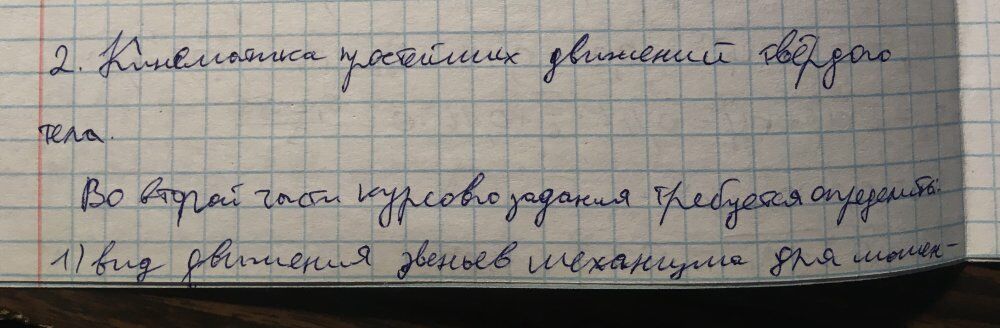 2. Кинематика простейших движений твёрдого
тела.
Во второй части курсового задания требуется определить:
1) вид движения звеньев механизма для момен-